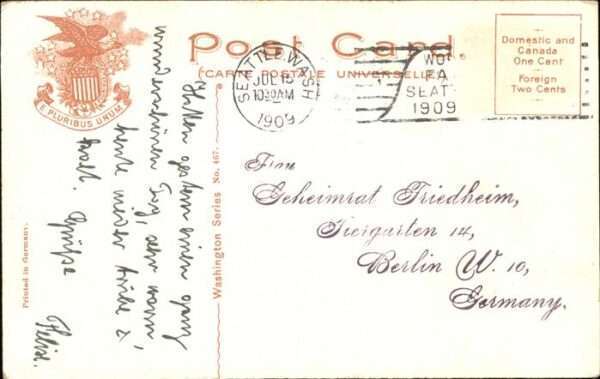 Post Card
(CARTE POSTALE UNIVERSELLE)
E PLURIBUS UNUM
SEATTLE, WASH
JUL 15
10 30 AM
1909
WO
FA
SEAT
1909
Domestic and
Canada
One Cent
Foreign
Two Cents
Hatten gestern einen ganz
wunderschönen Tag, sehr warm,
heute wieder trübe &
kalt. Grüße
Felix.
Frau
Geheimrat Friedheim,
Tiergarten 14,
Berlin W. 10,
Germany.
Washington Series No. 467.
Printed in Germany.